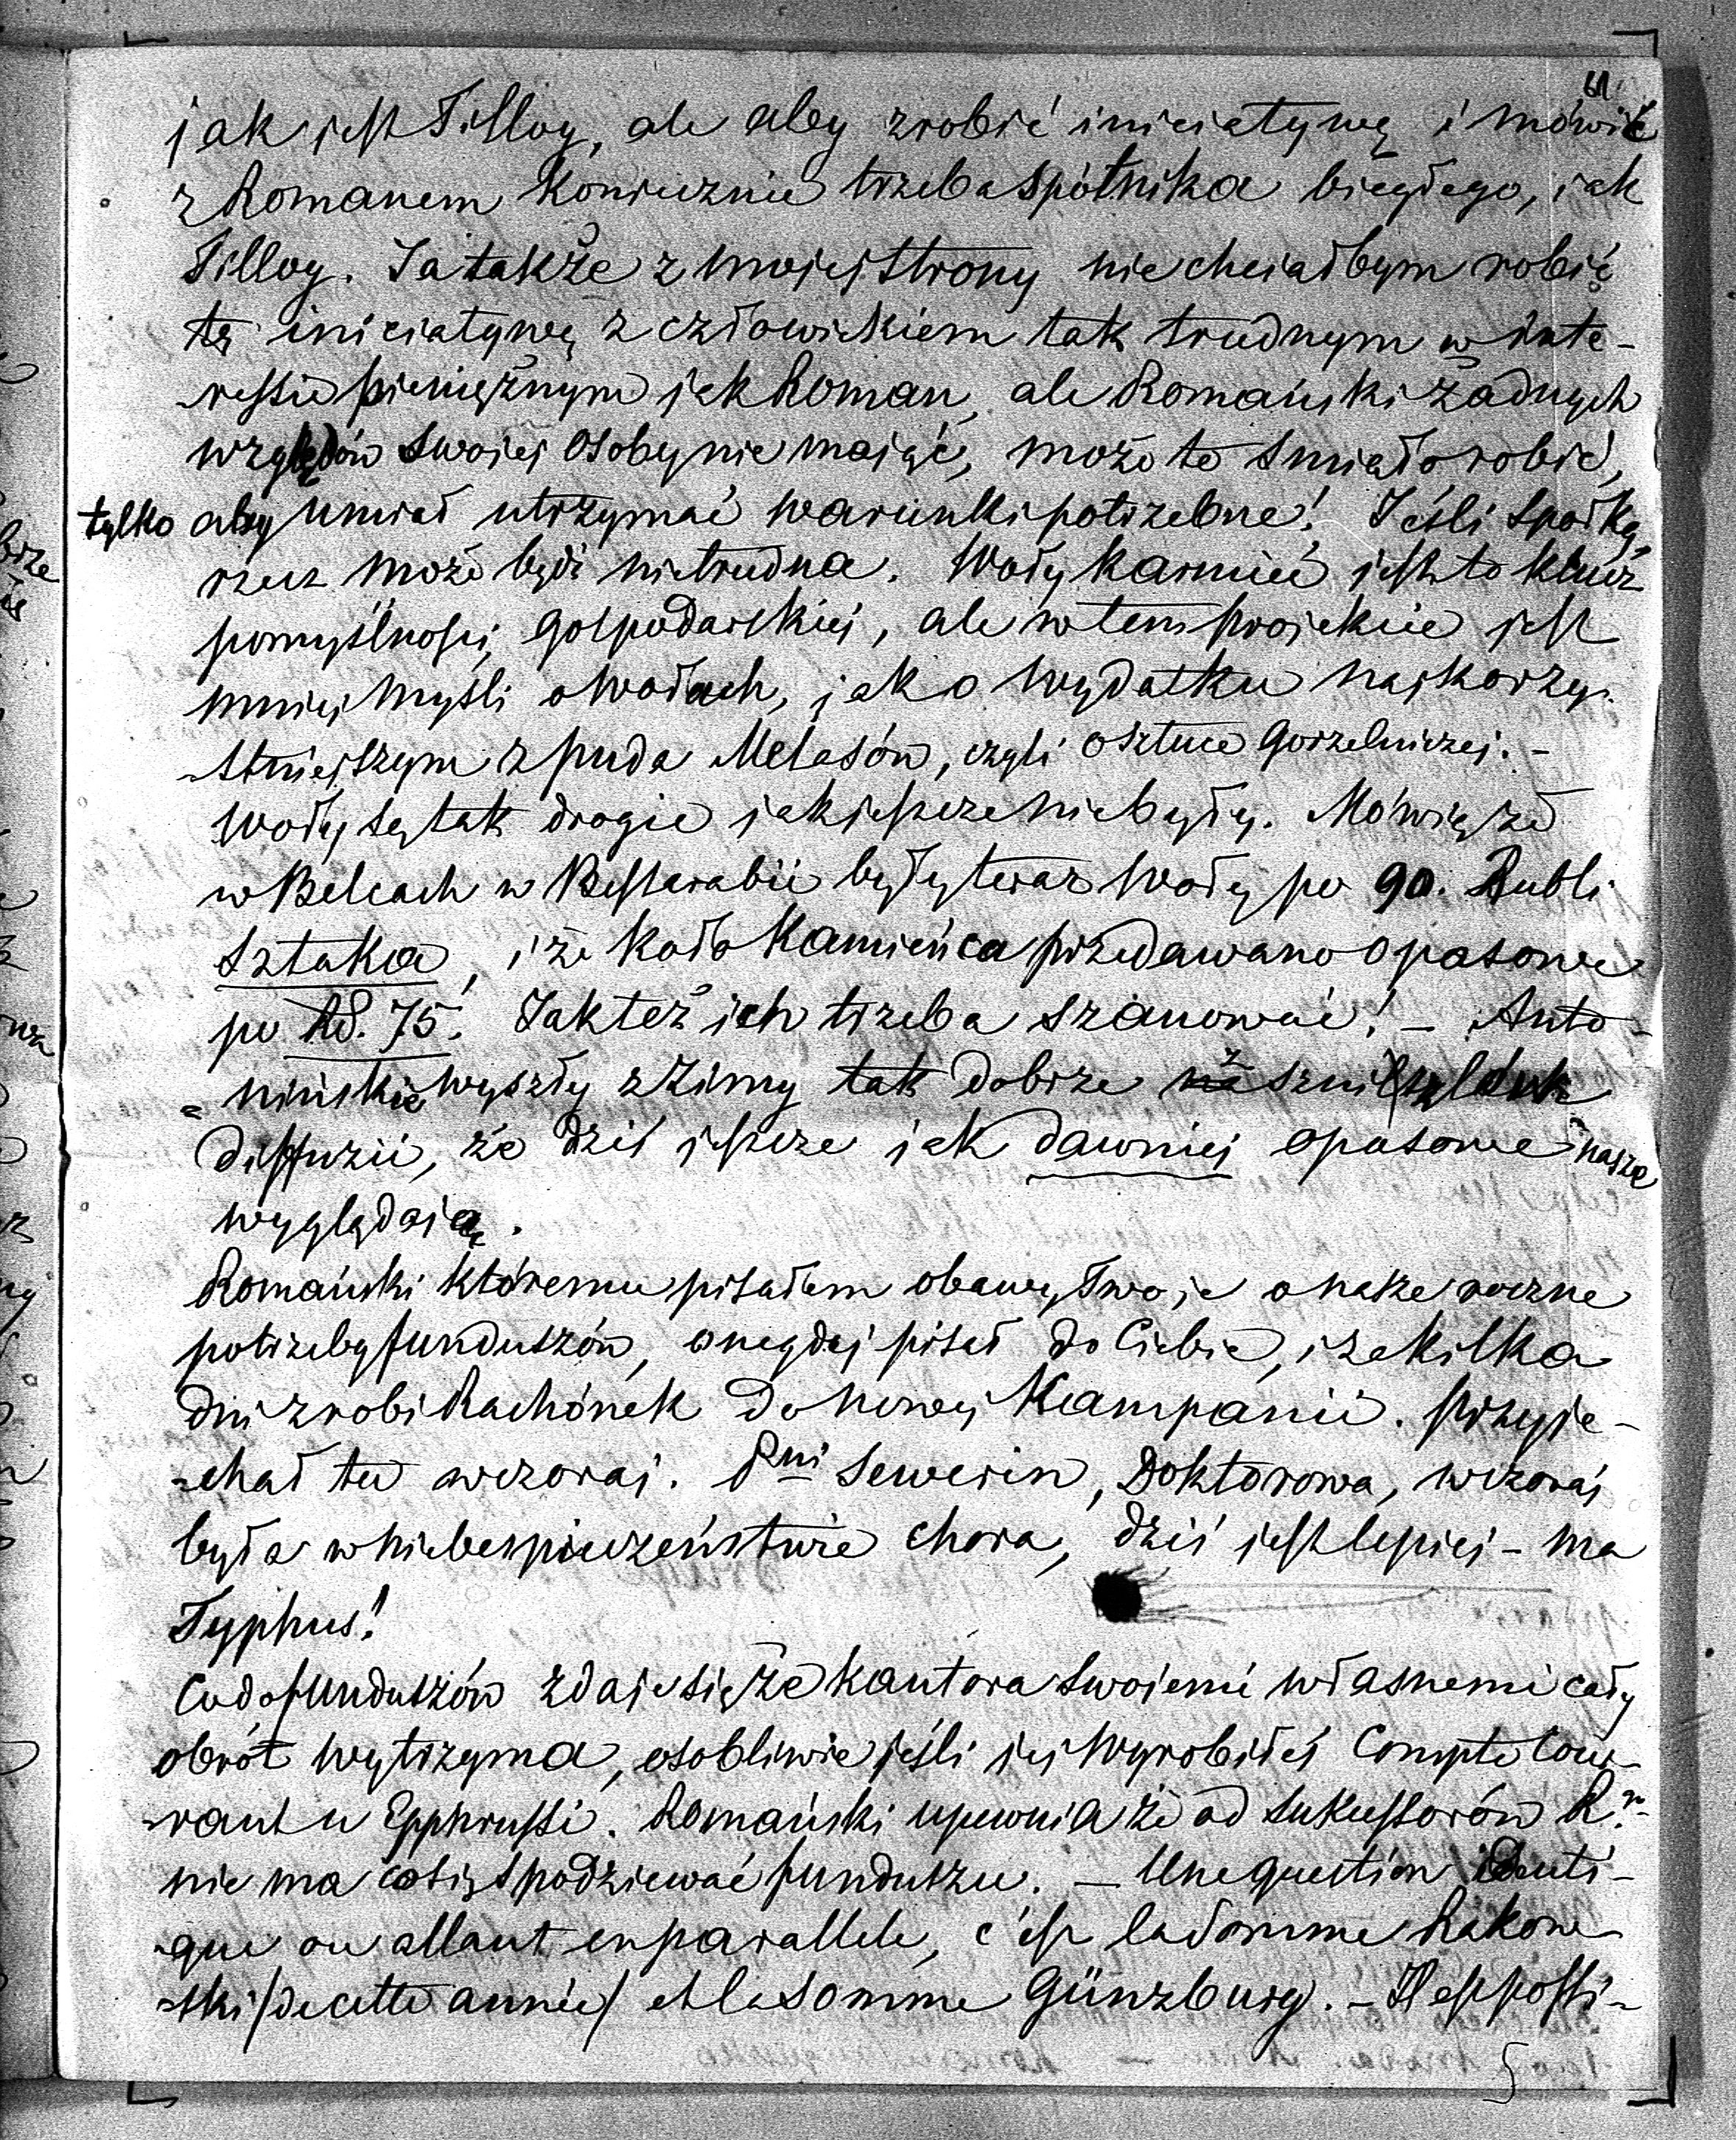 61.
jak jest Tilloy, ale aby zrobić iniciatywę i mówić
z Romanem koniecznie trzeba spólnika biegłego, jak
Tilloy. Ja także z mojej strony nie chciałbym robić
tę iniciatywę z człowiekiem tak trudnym w inte-
-ressie pieniężnym jak Roman, ale Romański żadnych
względów swojej osoby nie mając, może to śmiało robić,
tylko aby umiał utrzymać warunki potrzebne! Jeśli spółką,
rzecz może bydź nietrudna. Woły karmić jest to klucz
pomyślności gospodarskiej, ale w tem projekcie jest
mniej myśli o wołach, jak o wydatku najkorzy-
-stniejszym z puda Melasów, czyli o sztuce gorzelniczej. -
Woły są tak drogie jak jeszcze nie były. Mówią że
w Belcach w Bessarabii były teraz woły po 90. Rubli
sztuka, i że koło Kamieńca przedawano opasowe
po Rs. 75! Jak też ich trzeba szanować! - Anto-
-nińskie wyszły z zimy tak dobrze z
diffuzii, że dziś jeszcze jak dawniej opasowe nasze
wyglądają.
Romański któremu pisałem obawy Twoje o nasze roczne
potrzeby funduszów, onegdaj pisał do Ciebie, i za kilka
dni zrobi Rachónek do nowej Kampanii. Przyje-
-chał tu wczoraj. Pni Sewerin, Doktorowa, wczoraj
była w niebespieczeństwie chora, dziś jest lepiej - ma
Typhus!
Co do funduszów zdaje się że kantora swojemi własnemi cały
obrót wytrzyma, osobliwie jeśli jej wyrobiłeś Compte Cou-
-rant u Epphrussi. Romański upewnia że od sukcessorów R.
nie ma co się spodziewać funduszu. - Une question identi-
-que ou allant en parallele, c'est la somme Rakow-
-ski /de cette année/ et la somme Günzburg. - Il est possi-